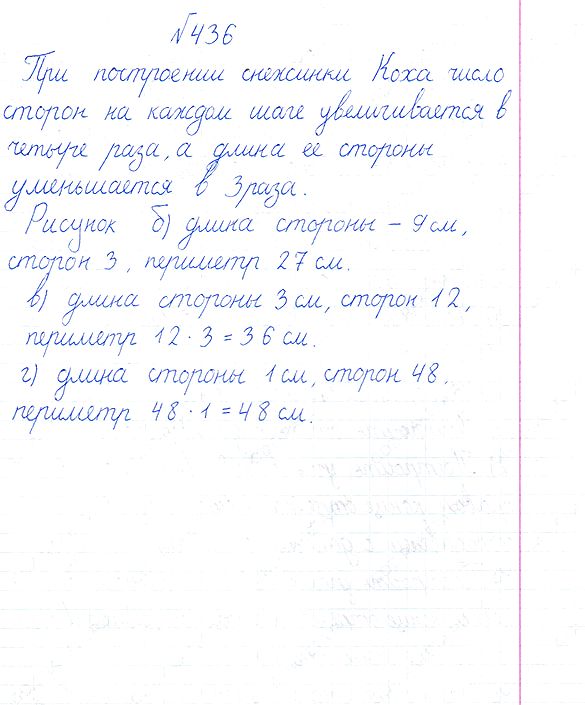 №436
При построении снежинки Коха число
сторон на каждом шаге увеличивается в
четыре раза, а длина ее стороны
уменьшается в 3 раза.
Рисунок б) длина стороны - 9 см,
сторон 3, периметр 27 см.
в) длина стороны 3 см, сторон 12,
периметр 12 · 3 = 36 см.
г) длина стороны 1 см, сторон 48,
периметр 48 · 1 = 48 см.